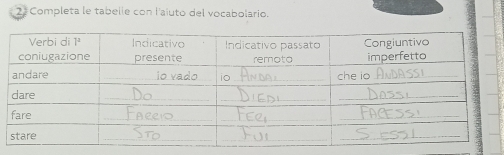 2 Completa le tabelle con l'aiuto del vocabolario.
Verbi di 1ª coniugazione Indicativo presente Indicativo passato remoto Congiuntivo imperfetto
andare io vado io ANDAI che io ANDASSI
dare DO DIEDI DASSI
fare FACCIO FECI FACESSI
stare STO FUI S ESSI